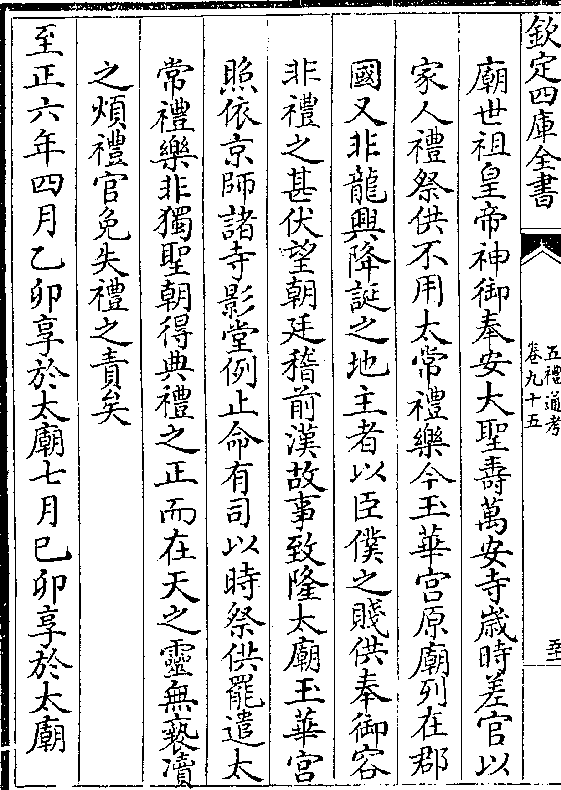 欽定四庫全書
五禮通考
卷九十五
廟世祖皇帝神御奉安大聖壽萬安寺歲時差官以
家人禮祭供不用太常禮樂今玉華宮原廟列在郡
國又非龍興降誕之地主者以臣僕之賤供奉御容
非禮之甚伏望朝廷稽前漢故事致隆太廟玉華宮
照依京師諸寺影堂例止命有司以時祭供罷遣太
常禮樂非獨聖朝得典禮之正而在天之靈無褻瀆
之煩禮官免失禮之責矣
至正六年四月乙卯享於太廟七月己卯享於太廟